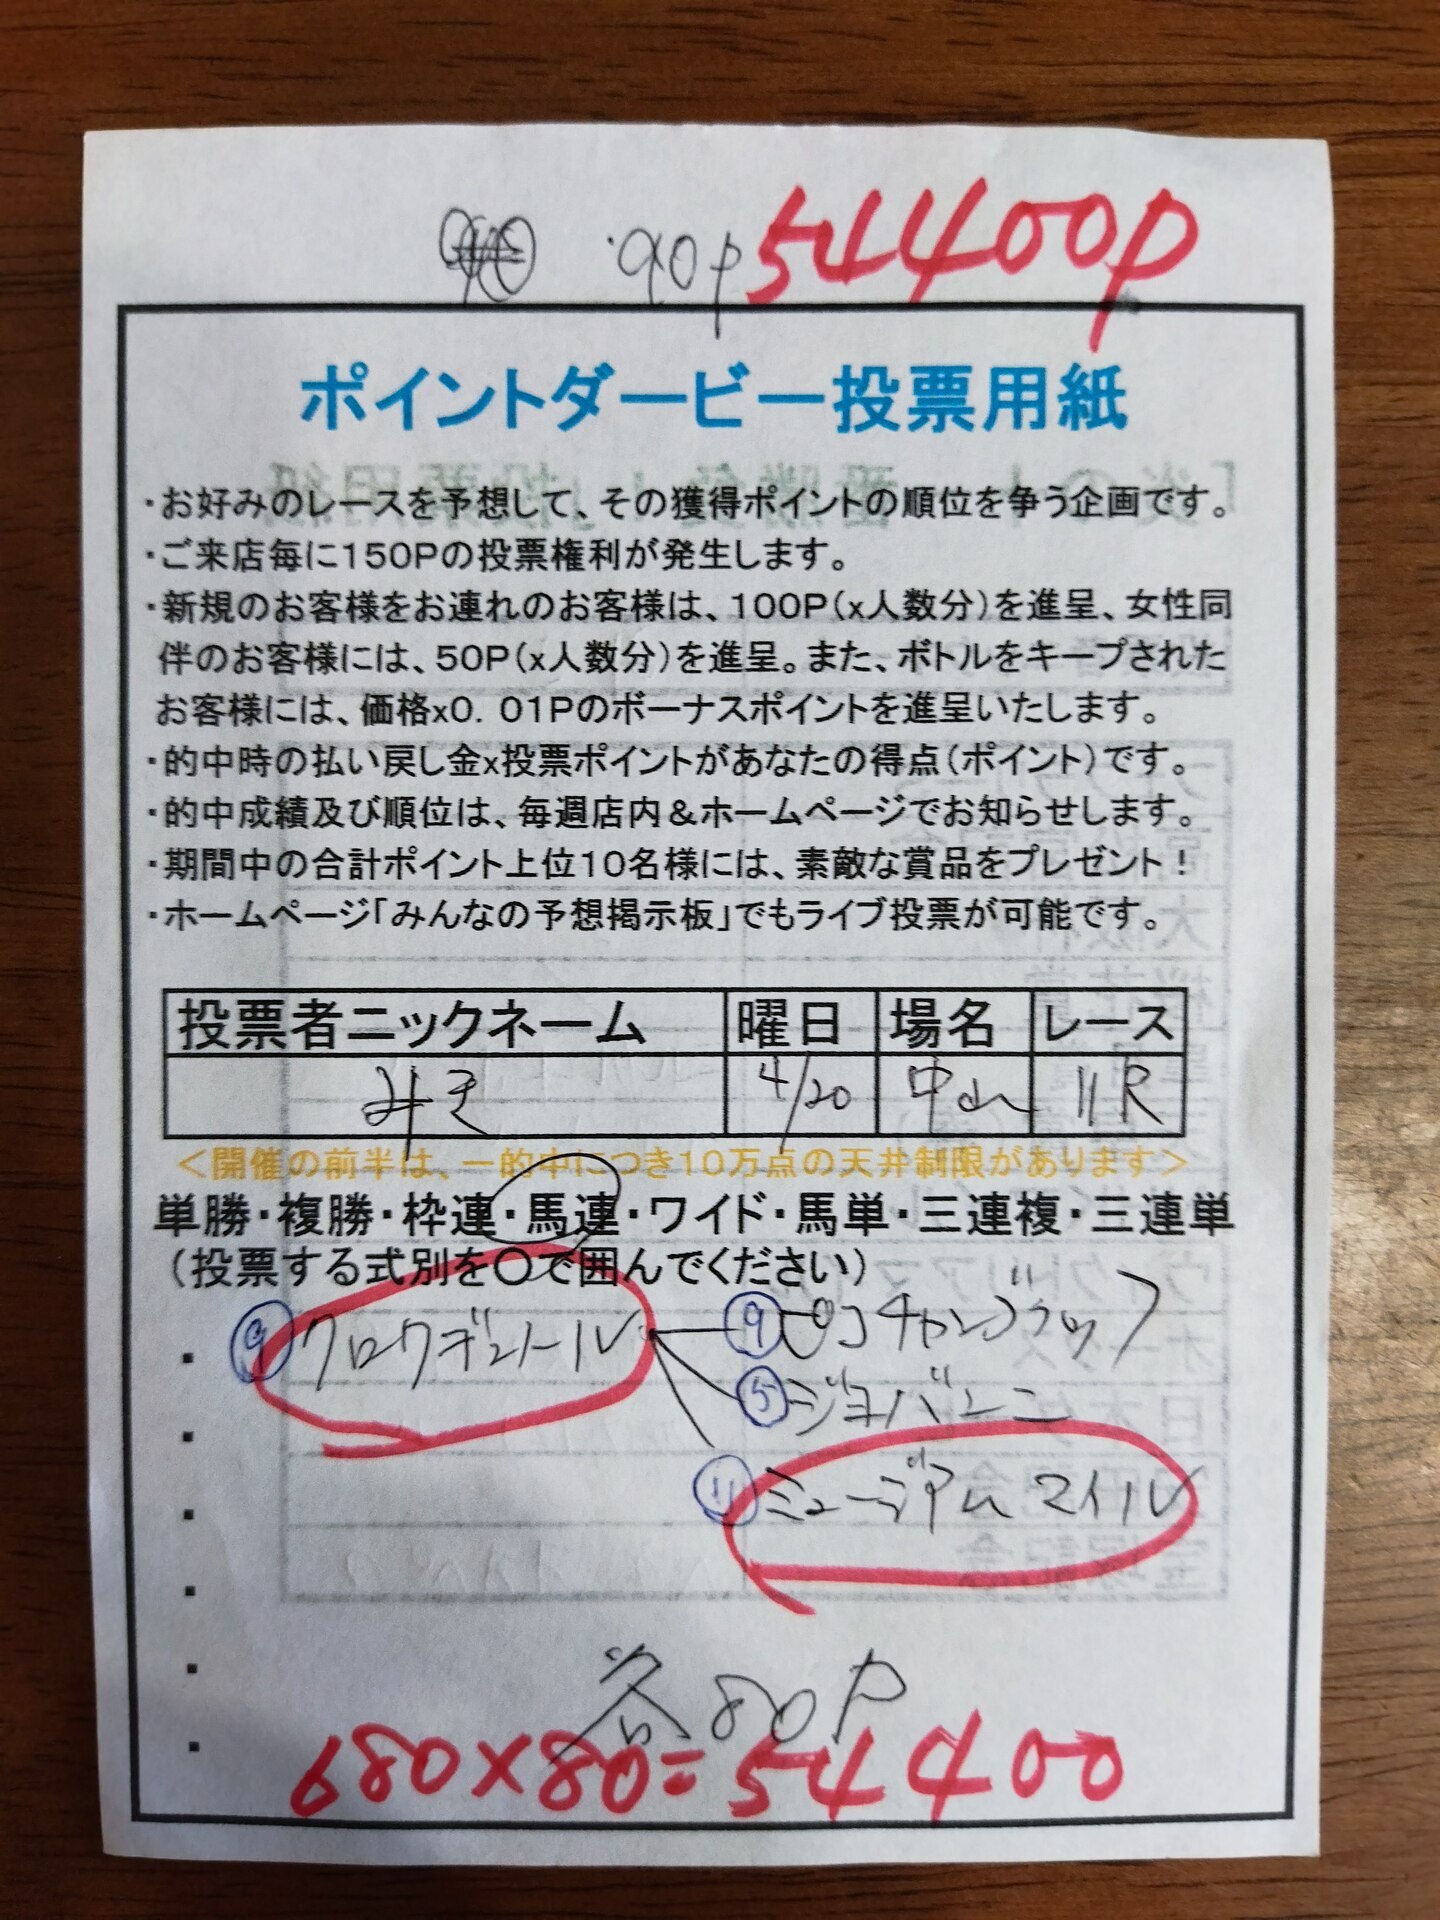 90p 54400p
ポイントダービー投票用紙
・お好みのレースを予想して、その獲得ポイントの順位を争う企画です。
・ご来店毎に150Pの投票権利が発生します。
・新規のお客様をお連れのお客様は、100P(x人数分)を進呈、女性同
伴のお客様には、50P(x人数分)を進呈。また、ボトルをキープされた
お客様には、価格x0.01Pのボーナスポイントを進呈いたします。
・的中時の払い戻し金x投票ポイントがあなたの得点(ポイント)です。
・的中成績及び順位は、毎週店内&ホームページでお知らせします。
・期間中の合計ポイント上位10名様には、素敵な賞品をプレゼント!
・ホームページ「みんなの予想掲示板」でもライブ投票が可能です。
投票者ニックネーム 曜日 場名 レース
みき 4/20 中山 11R
<開催の前半は、一的中につき10万点の天井制限があります>
単勝・複勝・枠連・馬連・ワイド・馬単・三連複・三連単
(投票する式別を○で囲んでください)
クロワデュノール ピコチャンブラック
⑤ジョバンニ
⑪ミュージアムマイル
各80P
680×80=54400